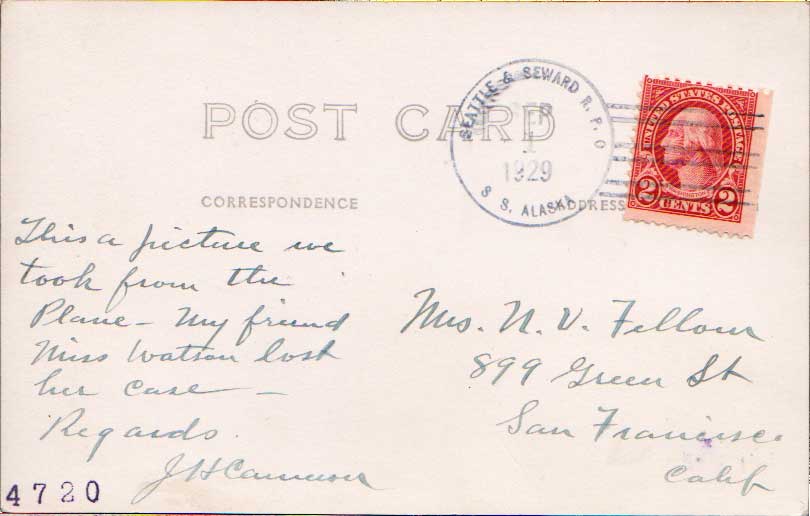 SEATTLE & SEWARD R.P.O
SEP
1
1929
S.S. ALASKA
UNITED STATES POSTAGE
2 CENTS 2
POST CARD
CORRESPONDENCE
ADDRESS
This a picture we
took from the
Plane - My friend
Miss Watson lost
her case -
Regards.
J H Cameron
4720
Mrs. N. V. Fellows
899 Green St
San Francisco
Calif